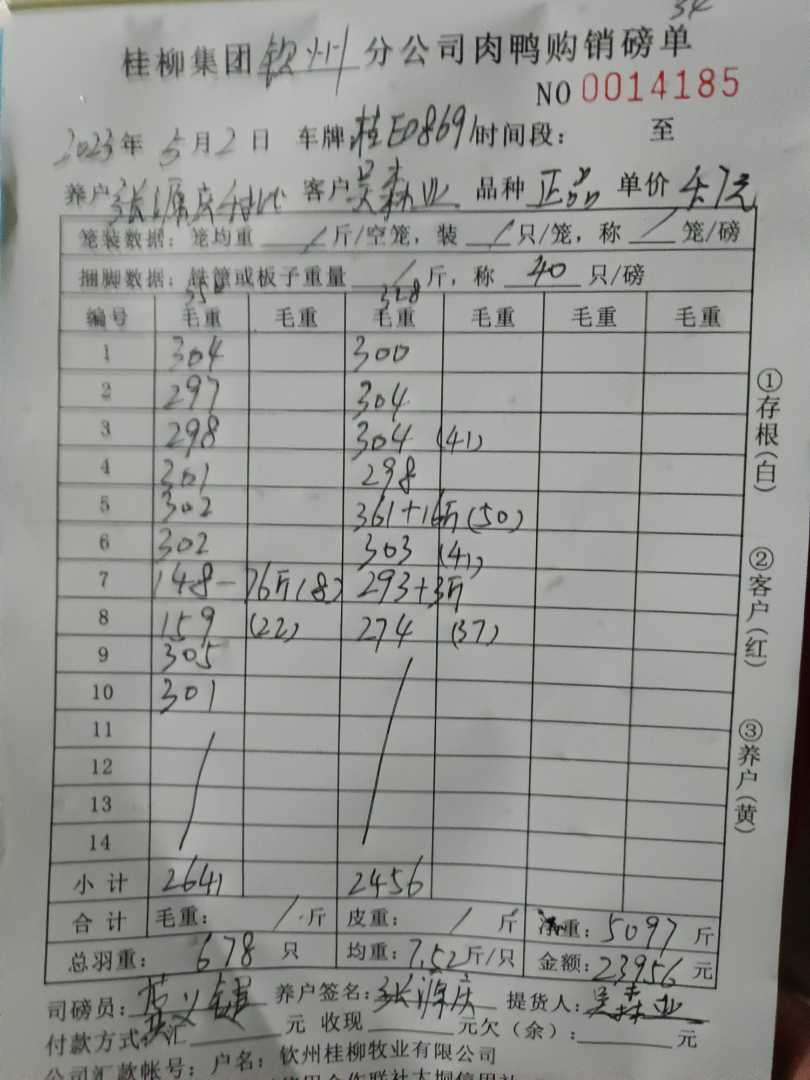 34
桂柳集团钦州分公司肉鸭购销磅单
NO 0014185
2023年5月2日 车牌:桂E0869 时间段: 至
养户 张源庆 客户 吴森业 品种 正品 单价 4.7元
笼装数据: 笼均重 / 斤/空笼, 装 / 只/笼, 称 / 笼/磅
捆脚数据: 铁筐或板子重量 / 斤, 称 40 只/磅
350 328
编号 毛重 毛重 毛重 毛重 毛重 毛重
1 304 300
2 297 304
3 298 304 (41)
4 301 298
5 302 361+16斤(50)
6 302 303 (41)
7 148-76斤(8) 293+3斤
8 159 (22) 274 (37)
9 305
10 301
11
12
13
14
小计 2641 2456
合计 毛重: / 斤 皮重: / 斤 净重: 5097 斤
总羽重: 678 只 均重: 7.52斤/只 金额: 23956 元
司磅员: 养户签名: 张源庆 提货人: 吴森业
付款方式: 汇 元 收现 元欠(余): 元
公司汇款帐号: 户名: 钦州桂柳牧业有限公司
①存根(白)
②客户(红)
③养户(黄)